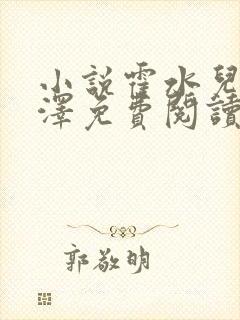 小説霍水兒
澤免費閱讀
郭敬明